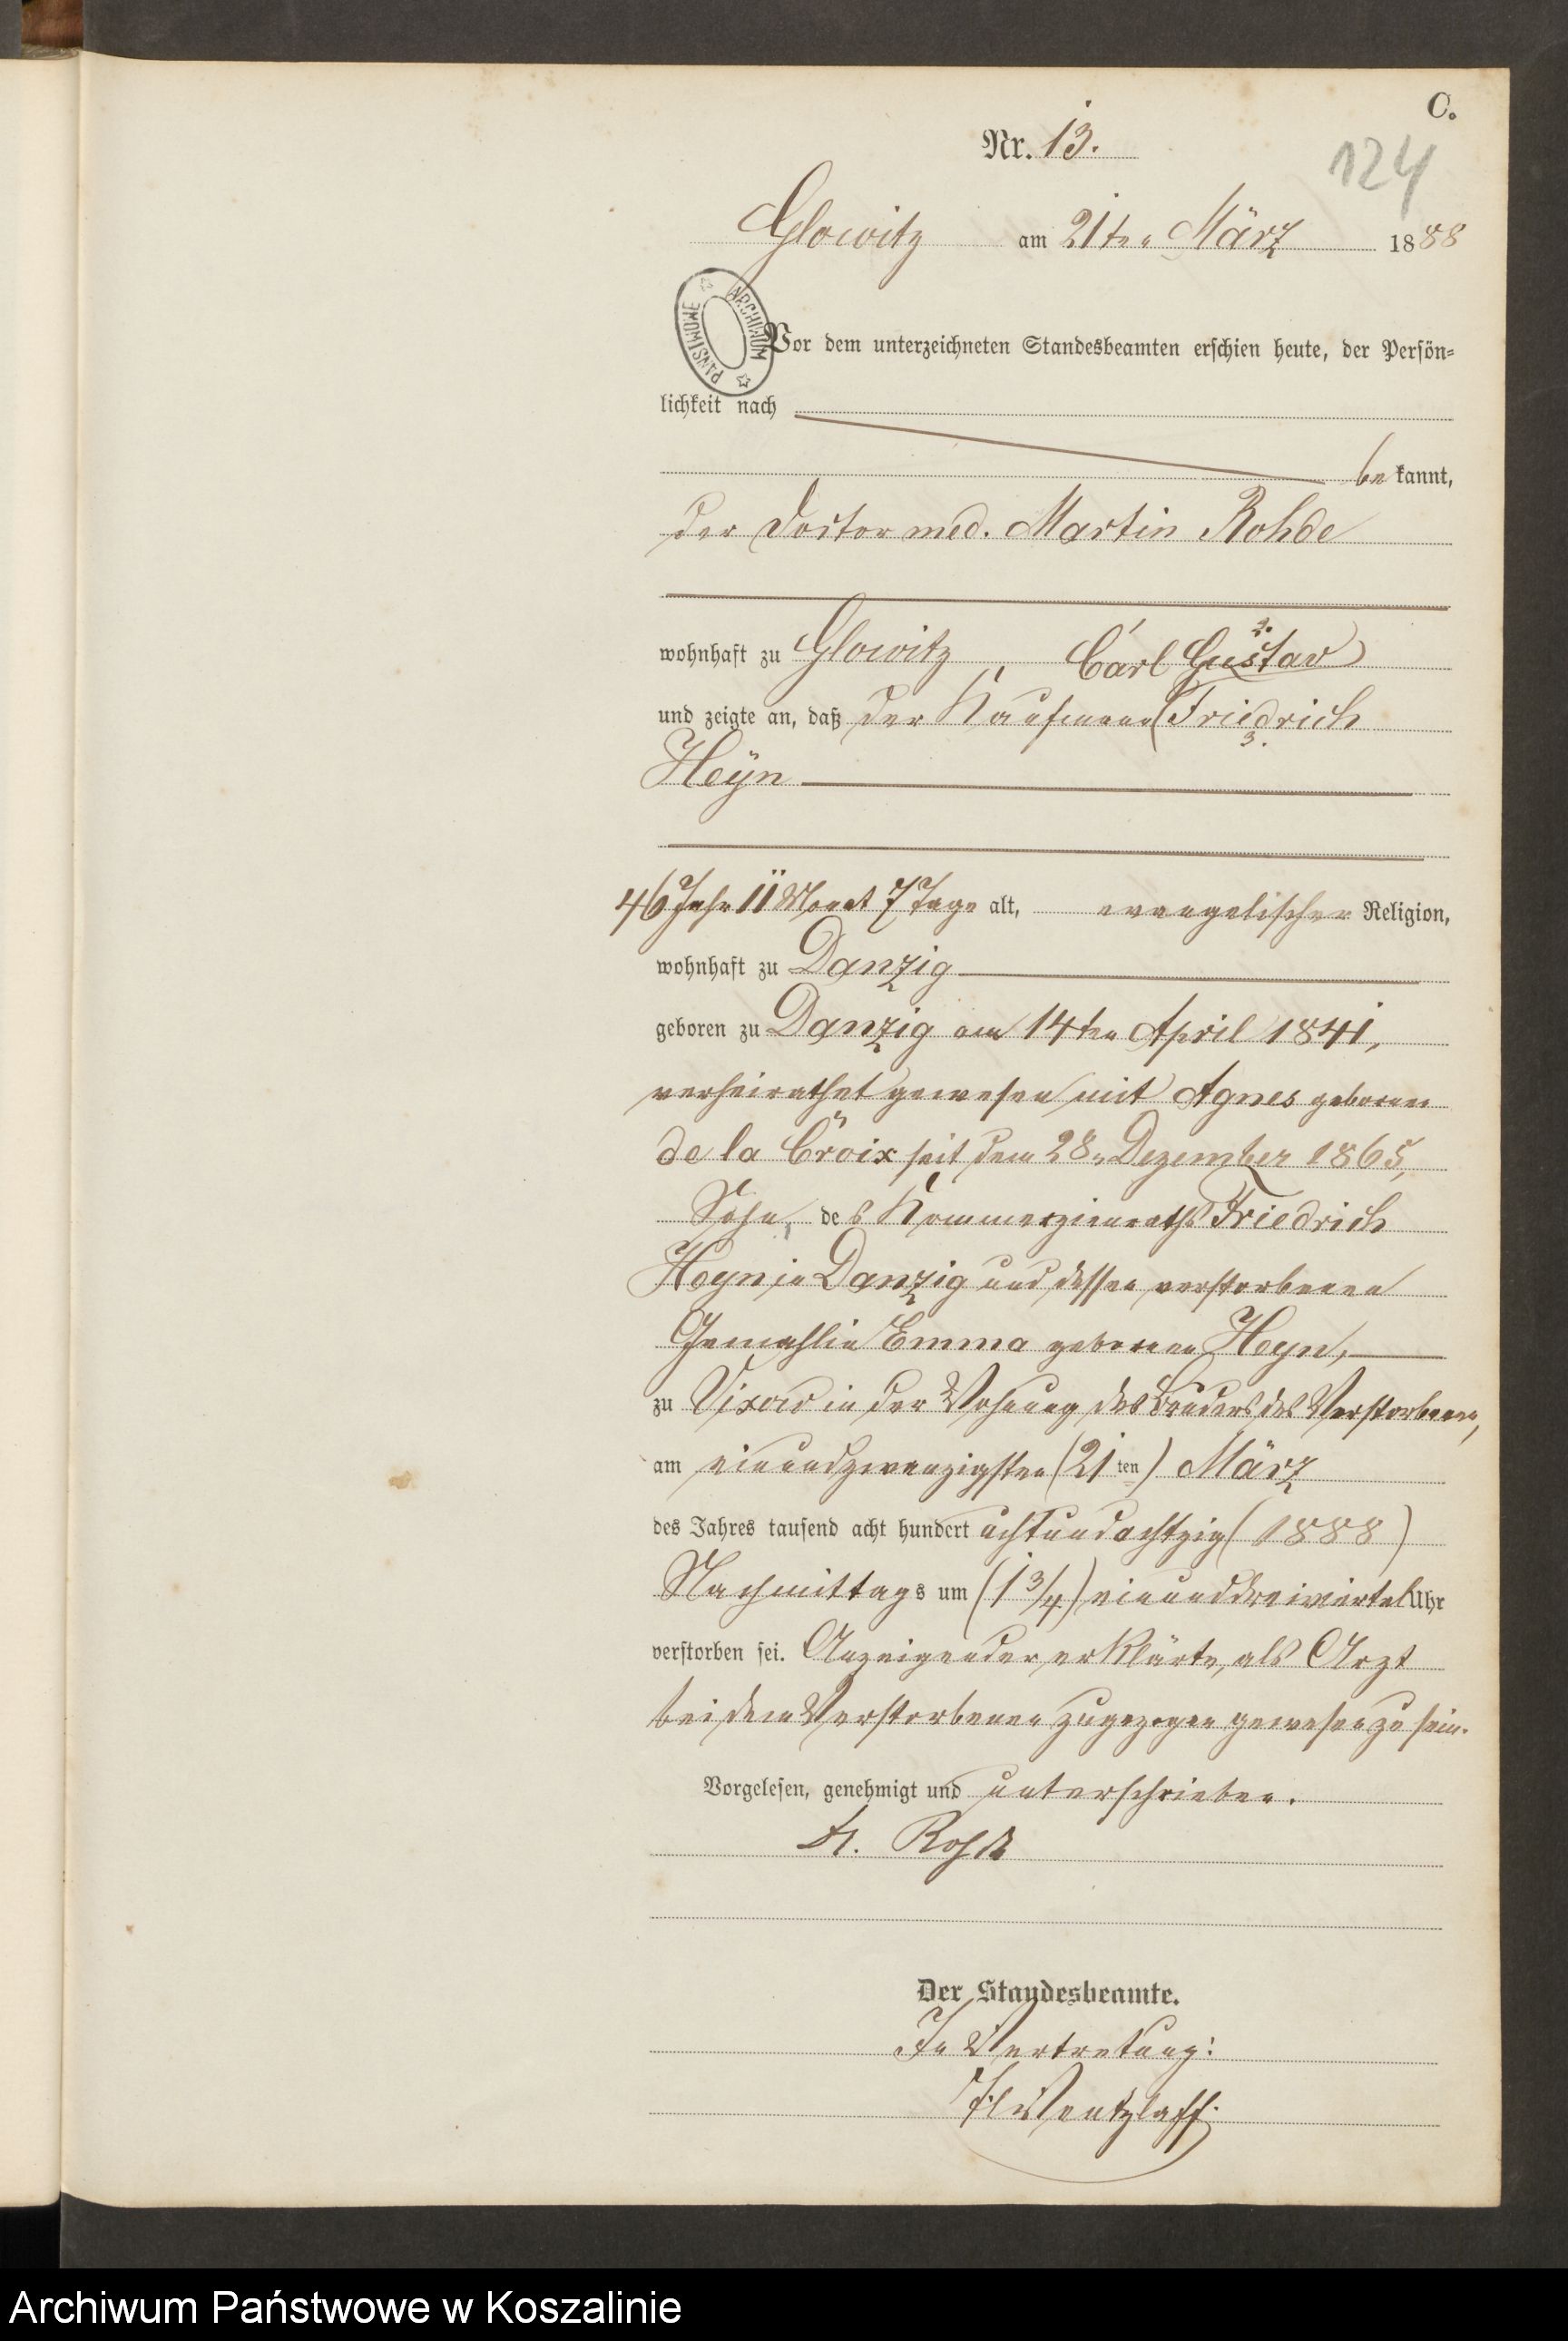 C.
Nr. 13.
124
Glowitz am 21ten März 1888
ARCHIWUM PAŃSTWOWE
Vor dem unterzeichneten Standesbeamten erschien heute, der Persön=
lichkeit nach
bekannt,
der Doctor med. Martin Rohde
wohnhaft zu Glowitz
2.
Carl Gustav
und zeigte an, daß der Kaufmann (Friedrich
3.
Heyn
46 Jahr 11 Monat 7 Tage alt, evangelischer Religion,
wohnhaft zu Danzig
geboren zu Danzig am 14ten April 1841,
verheirathet gewesen mit Agnes geborene
de la Croix seit dem 28n Dezember 1865,
Sohn des Kommerzienraths Friedrich
Heyn in Danzig und dessen verstorbenen
Gemahlin Emma geborenen Heyn,
zu Vixow in der Wohnung des Bruders des Verstorbenen,
am einundzwanzigsten (21ten) März
des Jahres tausend acht hundert achtundachtzig (1888)
Nachmittags um (1 3/4) einunddreiviertel Uhr
verstorben sei. Anzeigender erklärte, als Arzt
bei dem Verstorbenen zugezogen gewesen zu sein.
Vorgelesen, genehmigt und unterschrieben.
Dr. Rohde
Der Standesbeamte.
In Vertretung:
Wentzlaff.
Archiwum Państwowe w Koszalinie